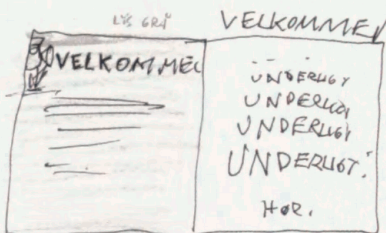 LYS GRÅ
VELKOMMEN
VELKOMMEN
UNDERLIGT
UNDERLIGT
UNDERLIGT
UNDERLIGT.
HØR.